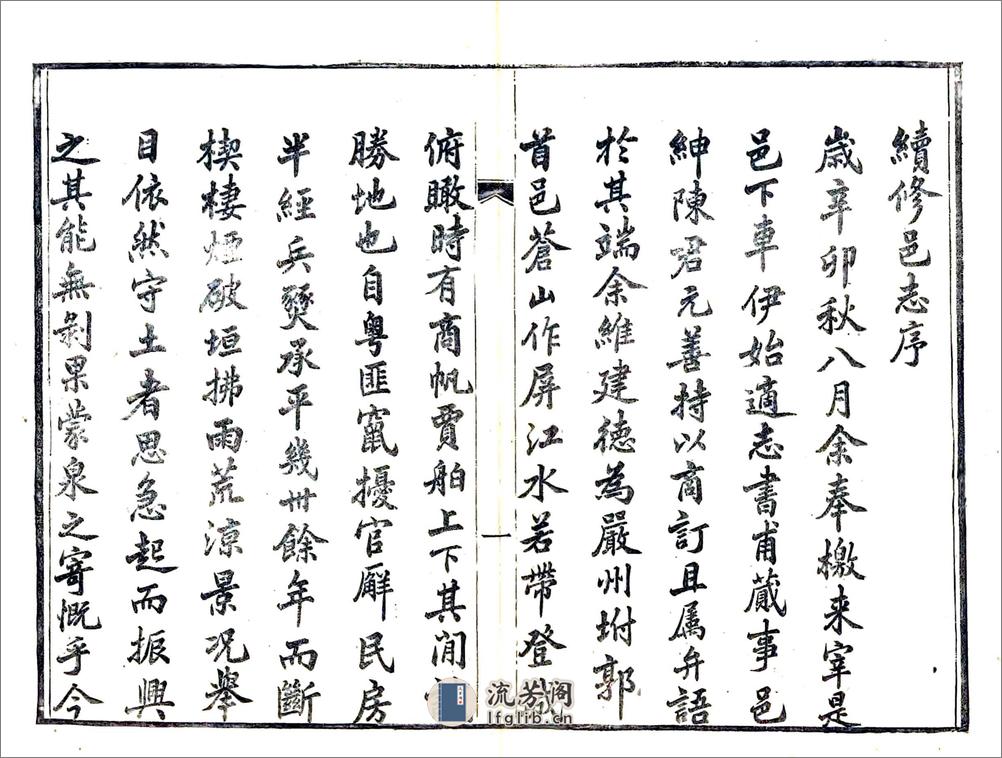 續修邑志序
歲辛卯秋八月余奉檄来宰是
邑下車伊始適志書甫蕆事邑
紳陳君元善持以商訂且属弁語
於其端余維建德為嚴州坿郭
首邑蒼山作屏江水若帶登
一
俯瞰時有商帆賈舶上下其閒
勝地也自粤匪竄擾官廨民房
半經兵燹承平幾卅餘年而斷
楔棲煙破垣拂雨荒涼景况舉
目依然守土者思急起而振興
之其能無剝果蒙泉之寄慨乎今
流芳阁
lfglib.cn